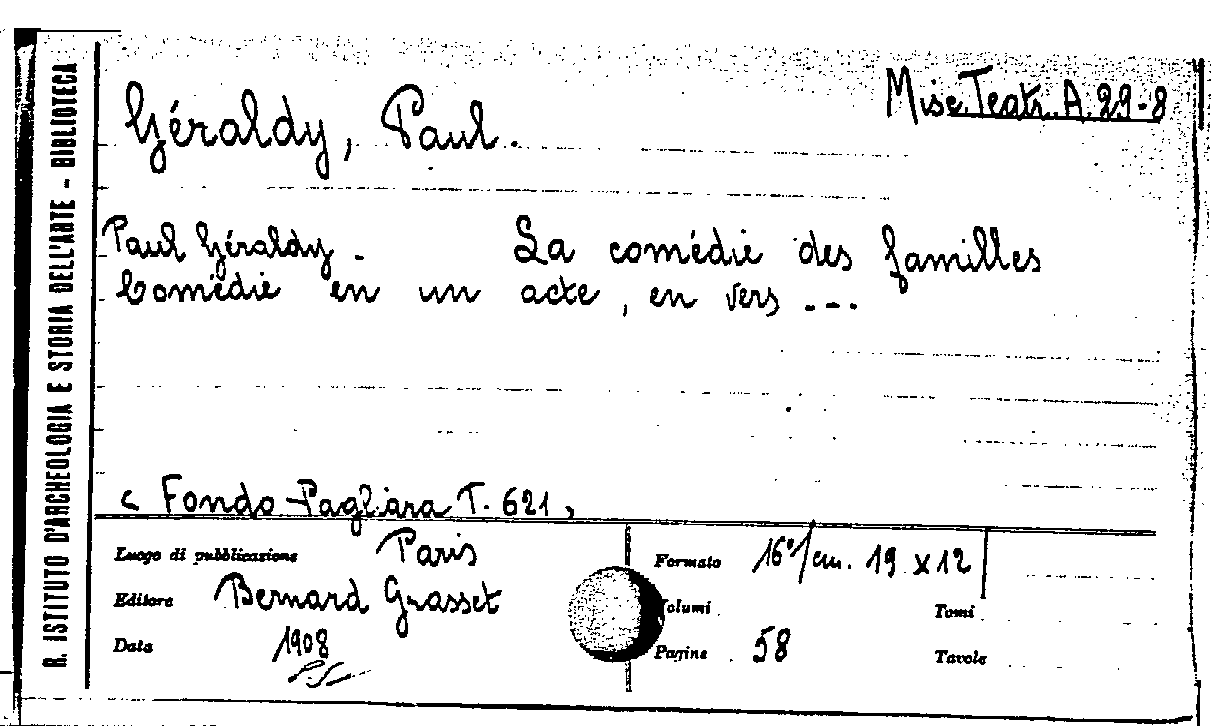 R. ISTITUTO D'ARCHEOLOGIA E STORIA DELL'ARTE - BIBLIOTECA
Misc. Teatr. A. 29-8
Géraldy, Paul.
Paul Géraldy. La comédie des familles
Comédie en un acte, en vers ...
( Fondo Pagliara T. 621 )
Luogo di pubblicazione Paris
Editore Bernard Grasset
Data 1908
Formato 16°/cm. 19 x 12
Volumi
Tomi
Pagine 58
Tavole